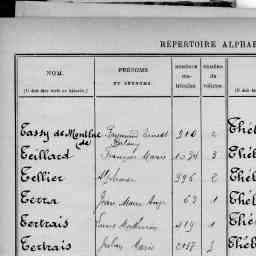 RÉPERTOIRE ALPHAB
NOM. PRÉNOMS ET SURNOMS. NUMÉROS MATRICULES. NUMÉROS DE VOLUMES.
Tassy de Montluc Raymond Ernest 910 2 Thél
(de)
Teillard François Marie 1034 3 Thél
Tellier Alphonse 396 2 Thél
Terra Jean Marie Ange 63 1 Thél
Tertrais Louis Mathurin 419 1 Thél
Tertrais Julien Marie Thél